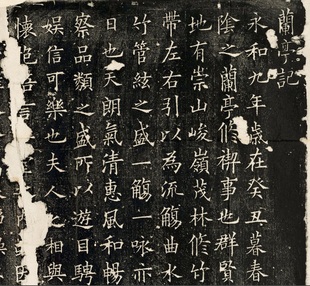 蘭亭記
永和九年歲在癸丑暮春
陰之蘭亭脩禊事也群賢
地有崇山峻嶺茂林脩竹
帶左右引以為流觴曲水
竹管絃之盛一觴一咏亦
日也天朗氣清惠風和暢
察品類之盛所以遊目騁
娛信可樂也夫人之相與
懷抱悟言